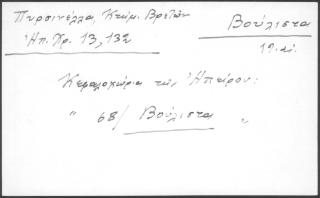 Πυρσινέλλα, Κτιμ. Βρετῶν
Ἠπ. Χρ. 13, 132
Βούλιστα
19. αἰ.
Κεφαλοχώρια τῆς Ἠπείρου:
" 68/ Βούλιστα "